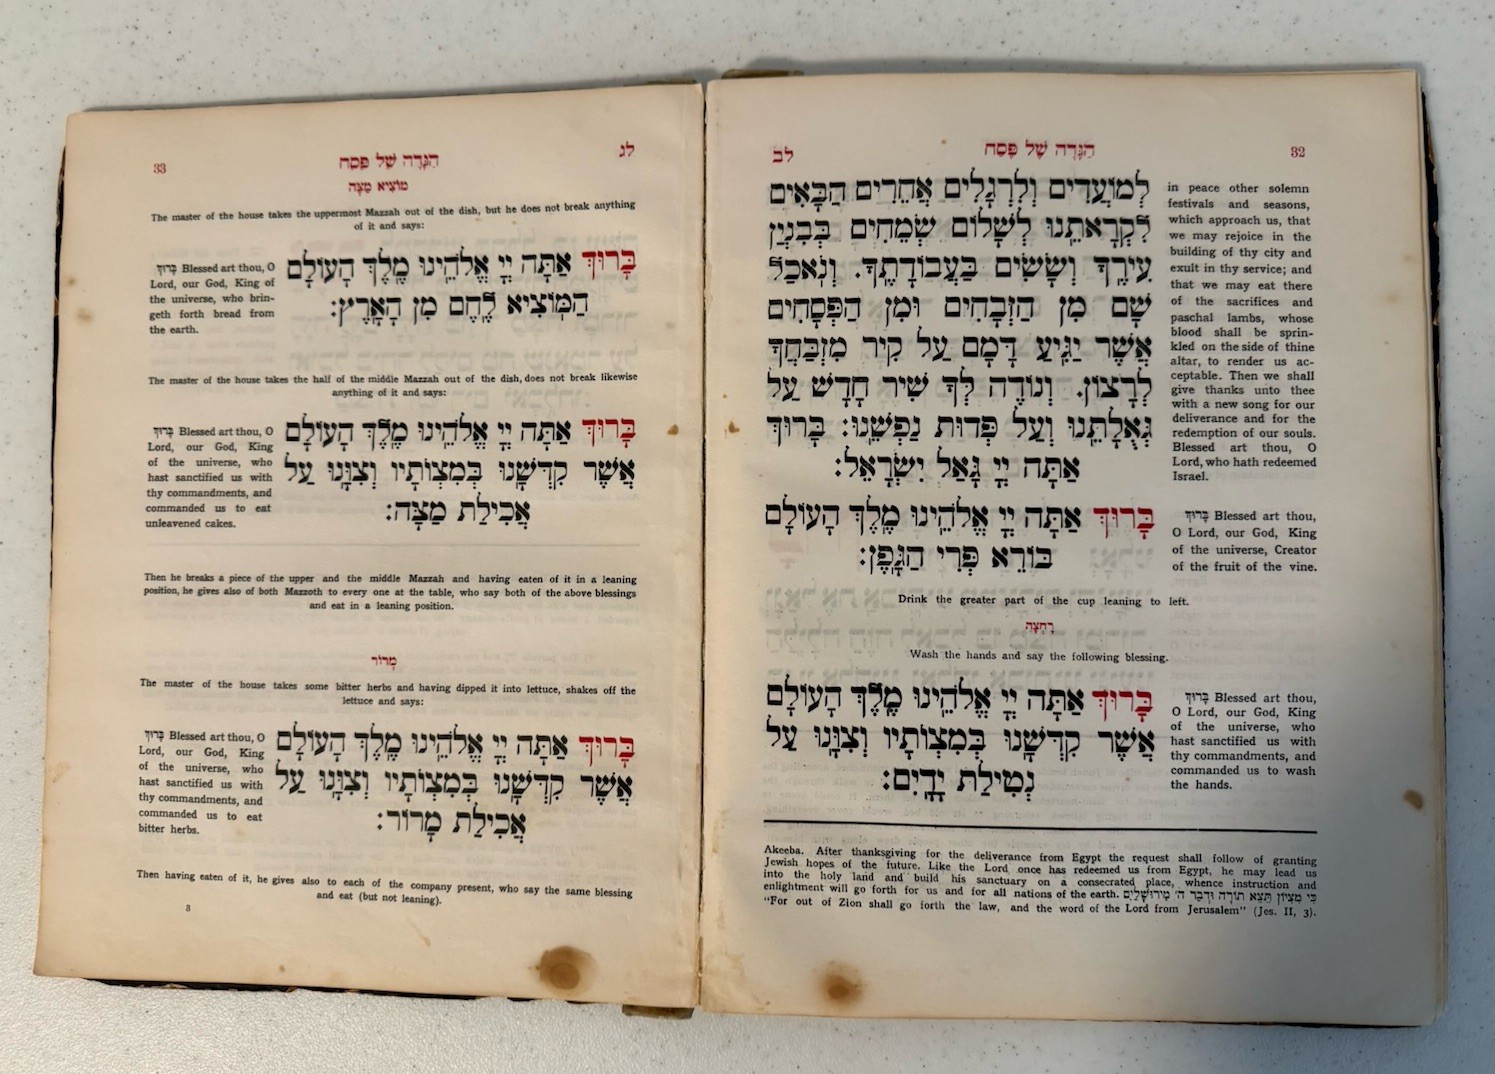 32
הַגָּדָה שֶׁל פֶּסַח
לב
לְמוֹעֲדִים וְלִרְגָלִים אֲחֵרִים הַבָּאִים
לִקְרָאתֵנוּ לְשָׁלוֹם שְׂמֵחִים בְּבִנְיַן
עִירֶךָ וְשָׂשִׂים בַּעֲבוֹדָתֶךָ. וְנֹאכַל
שָׁם מִן הַזְּבָחִים וּמִן הַפְּסָחִים
אֲשֶׁר יַגִּיעַ דָּמָם עַל קִיר מִזְבַּחֲךָ
לְרָצוֹן. וְנוֹדֶה לְּךָ שִׁיר חָדָשׁ עַל
גְּאֻלָּתֵנוּ וְעַל פְּדוּת נַפְשֵׁנוּ: בָּרוּךְ
אַתָּה יְיָ גָּאַל יִשְׂרָאֵל:
in peace other solemn
festivals and seasons,
which approach us, that
we may rejoice in the
building of thy city and
exult in thy service; and
that we may eat there
of the sacrifices and
paschal lambs, whose
blood shall be sprin-
kled on the side of thine
altar, to render us ac-
ceptable. Then we shall
give thanks unto thee
with a new song for our
deliverance and for the
redemption of our souls.
Blessed art thou, O
Lord, who hath redeemed
Israel.
בָּרוּךְ אַתָּה יְיָ אֱלֹהֵינוּ מֶלֶךְ הָעוֹלָם
בּוֹרֵא פְּרִי הַגָּפֶן:
בָּרוּךְ Blessed art thou,
O Lord, our God, King
of the universe, Creator
of the fruit of the vine.
Drink the greater part of the cup leaning to left.
רָחְצָה
Wash the hands and say the following blessing.
בָּרוּךְ אַתָּה יְיָ אֱלֹהֵינוּ מֶלֶךְ הָעוֹלָם
אֲשֶׁר קִדְּשָׁנוּ בְּמִצְוֹתָיו וְצִוָּנוּ עַל
נְטִילַת יָדָיִם:
בָּרוּךְ Blessed art thou,
O Lord, our God, King
of the universe, who
hast sanctified us with
thy commandments, and
commanded us to wash
the hands.
Akeeba. After thanksgiving for the deliverance from Egypt the request shall follow of granting
Jewish hopes of the future. Like the Lord once has redeemed us from Egypt, he may lead us
into the holy land and build his sanctuary on a consecrated place, whence instruction and
enlightment will go forth for us and for all nations of the earth. כִּי מִצִּיּוֹן תֵּצֵא תוֹרָה וּדְבַר ה' מִירוּשָׁלָיִם
"For out of Zion shall go forth the law, and the word of the Lord from Jerusalem" (Jes. II, 3).
לג
הַגָּדָה שֶׁל פֶּסַח
33
מוֹצִיא מַצָּה
The master of the house takes the uppermost Mazzah out of the dish, but he does not break anything
of it and says:
בָּרוּךְ אַתָּה יְיָ אֱלֹהֵינוּ מֶלֶךְ הָעוֹלָם
הַמּוֹצִיא לֶחֶם מִן הָאָרֶץ:
בָּרוּךְ Blessed art thou, O
Lord, our God, King of
the universe, who brin-
geth forth bread from
the earth.
The master of the house takes the half of the middle Mazzah out of the dish, does not break likewise
anything of it and says:
בָּרוּךְ אַתָּה יְיָ אֱלֹהֵינוּ מֶלֶךְ הָעוֹלָם
אֲשֶׁר קִדְּשָׁנוּ בְּמִצְוֹתָיו וְצִוָּנוּ עַל
אֲכִילַת מַצָּה:
בָּרוּךְ Blessed art thou, O
Lord, our God, King
of the universe, who
hast sanctified us with
thy commandments, and
commanded us to eat
unleavened cakes.
Then he breaks a piece of the upper and the middle Mazzah and having eaten of it in a leaning
position, he gives also of both Mazzoth to every one at the table, who say both of the above blessings
and eat in a leaning position.
מָרוֹר
The master of the house takes some bitter herbs and having dipped it into lettuce, shakes off the
lettuce and says:
בָּרוּךְ אַתָּה יְיָ אֱלֹהֵינוּ מֶלֶךְ הָעוֹלָם
אֲשֶׁר קִדְּשָׁנוּ בְּמִצְוֹתָיו וְצִוָּנוּ עַל
אֲכִילַת מָרוֹר:
בָּרוּךְ Blessed art thou, O
Lord, our God, King
of the universe, who
hast sanctified us with
thy commandments, and
commanded us to eat
bitter herbs.
Then having eaten of it, he gives also to each of the company present, who say the same blessing
and eat (but not leaning).
3